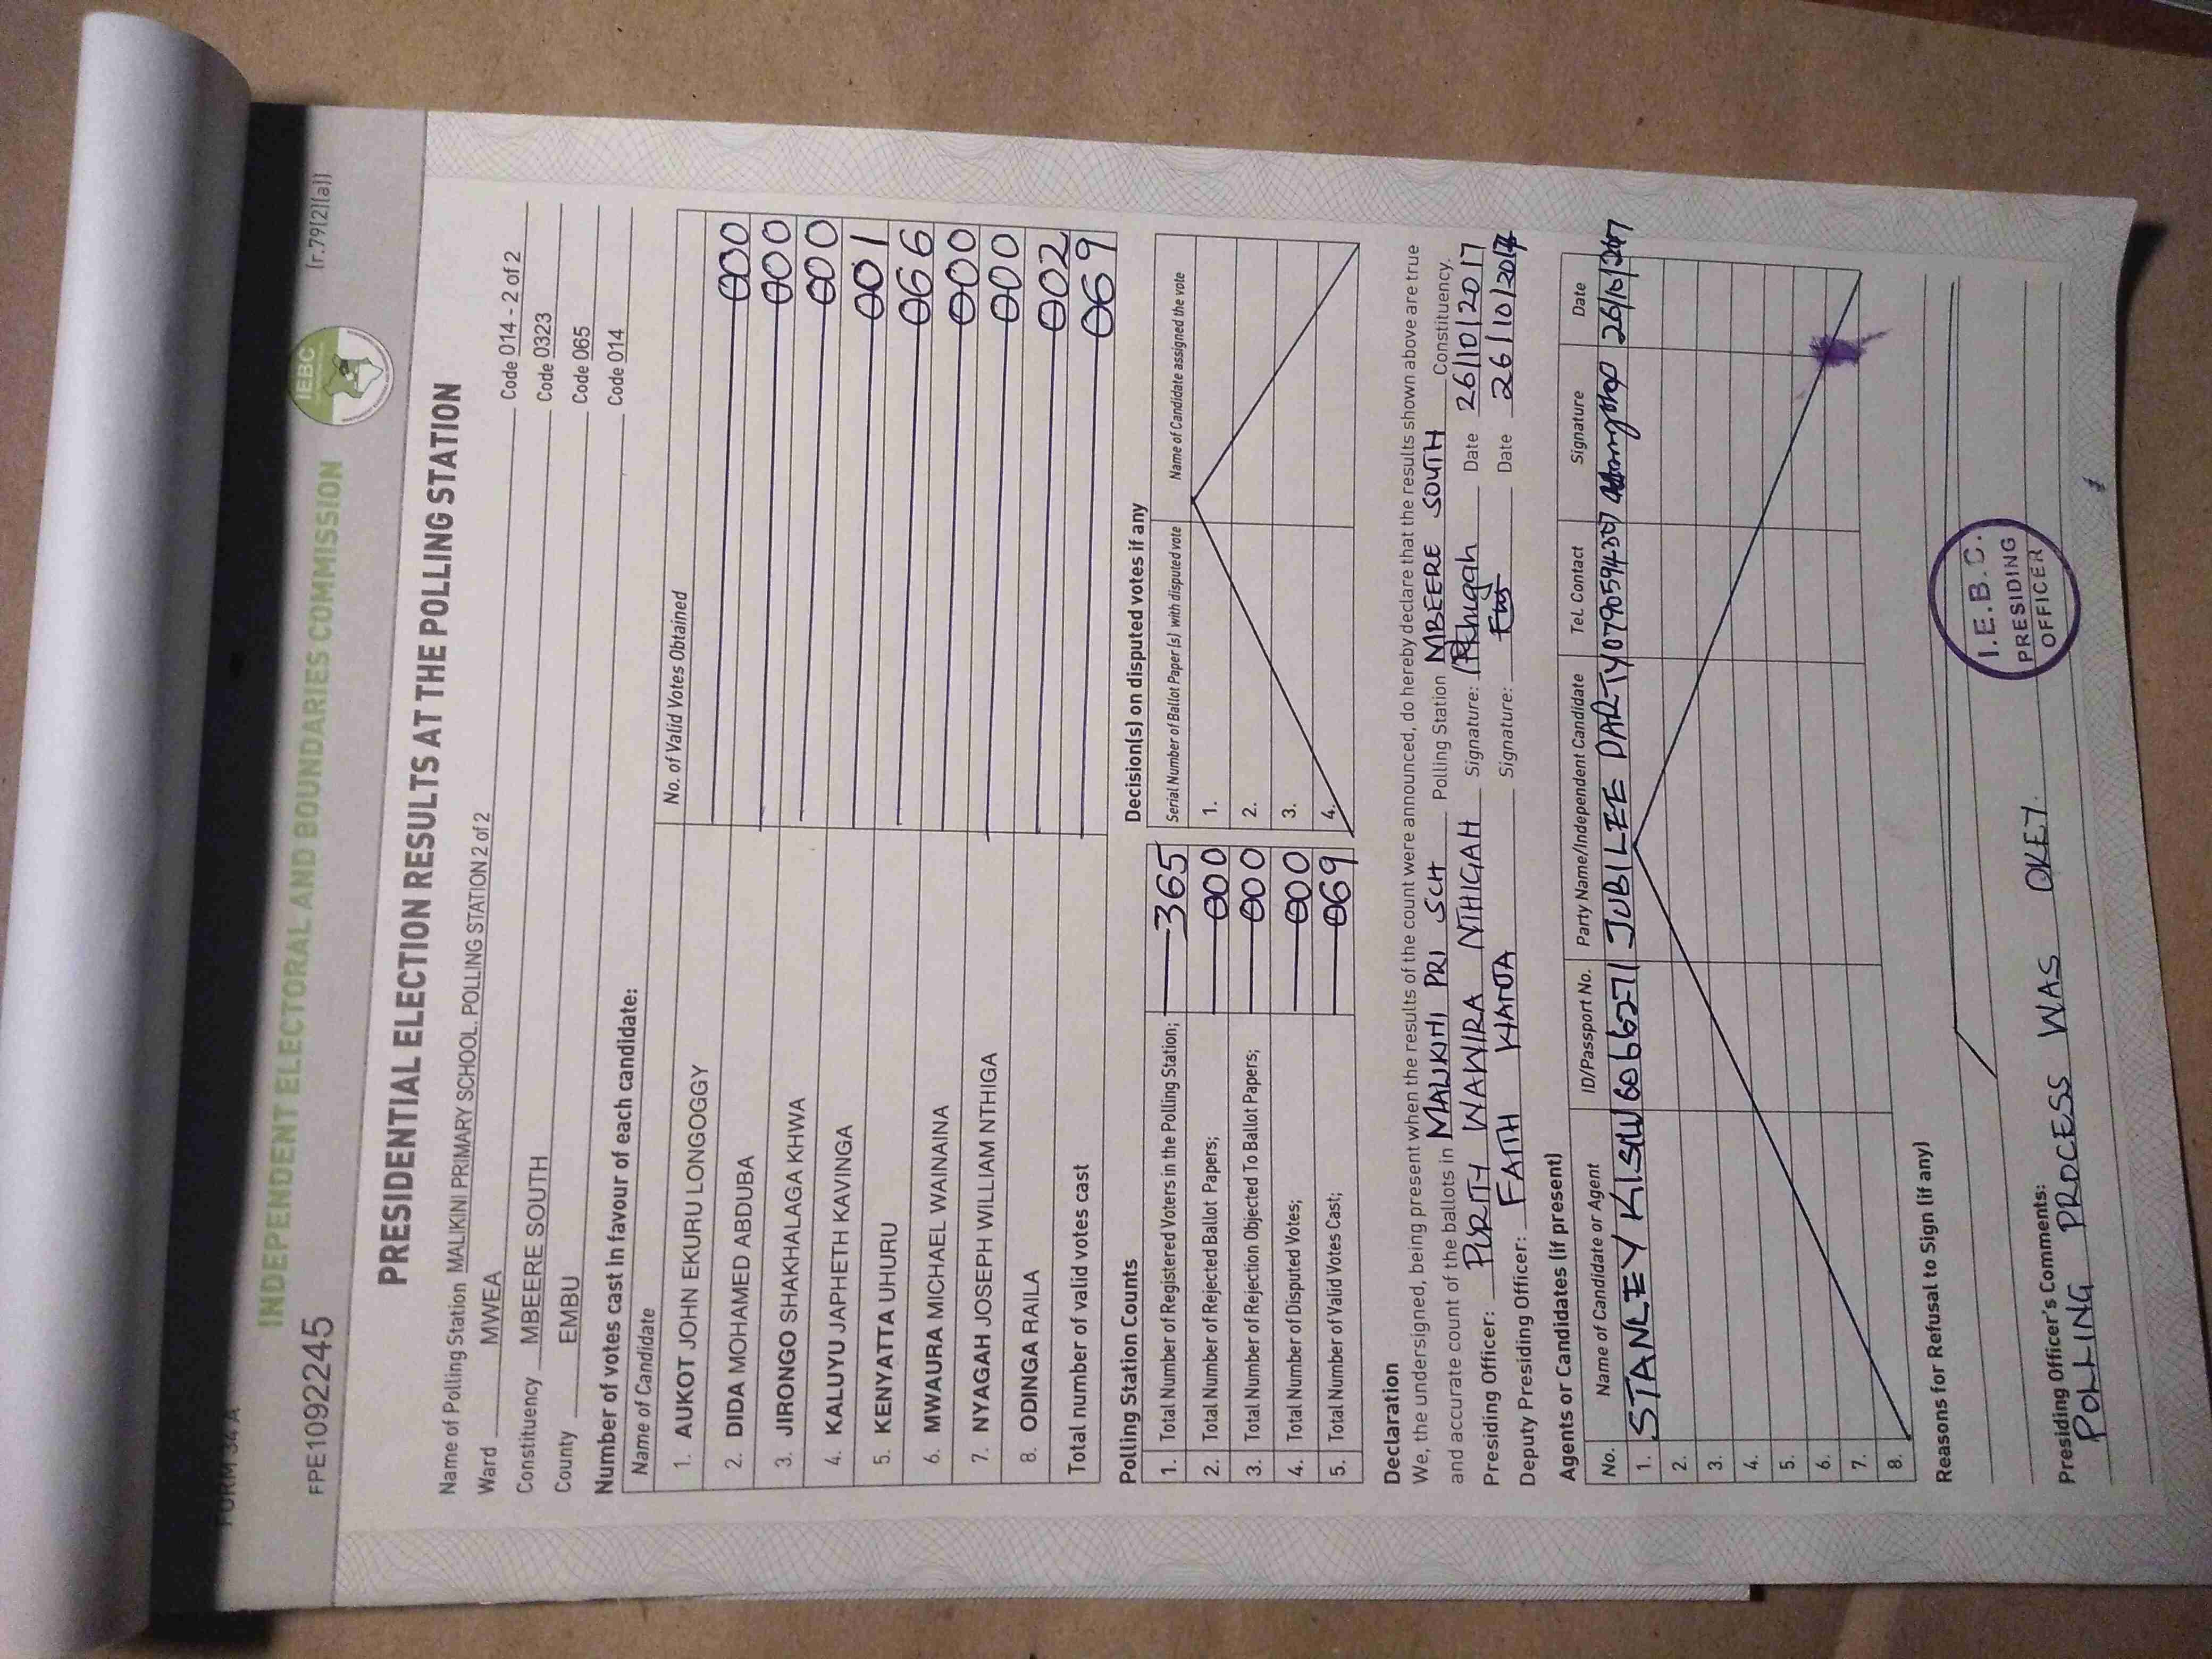 FORM 34 A
INDEPENDENT ELECTORAL AND BOUNDARIES COMMISSION
IEBC
FPE1092245 (r.79(2)(a))
PRESIDENTIAL ELECTION RESULTS AT THE POLLING STATION
Name of Polling Station MALIKINI PRIMARY SCHOOL. POLLING STATION 2 of 2 Code 014 - 2 of 2
Ward MWEA Code 0323
Constituency MBEERE SOUTH Code 065
County EMBU Code 014
Number of votes cast in favour of each candidate:
Name of Candidate No. of Valid Votes Obtained
1. AUKOT JOHN EKURU LONGOGGY 000
2. DIDA MOHAMED ABDUBA 000
3. JIRONGO SHAKHALAGA KHWA 000
4. KALUYU JAPHETH KAVINGA 001
5. KENYATTA UHURU 066
6. MWAURA MICHAEL WAINAINA 000
7. NYAGAH JOSEPH WILLIAM NTHIGA 000
8. ODINGA RAILA 002
Total number of valid votes cast 069
Polling Station Counts
1. Total Number of Registered Voters in the Polling Station; 365
2. Total Number of Rejected Ballot Papers; 000
3. Total Number of Rejection Objected To Ballot Papers; 000
4. Total Number of Disputed Votes; 000
5. Total Number of Valid Votes Cast; 069
Decision(s) on disputed votes if any
Serial Number of Ballot Paper (s) with disputed vote Name of Candidate assigned the vote
1.
2.
3.
4.
Declaration
We, the undersigned, being present when the results of the count were announced, do hereby declare that the results shown above are true
and accurate count of the ballots in MALIKINI PRI SCH Polling Station MBEERE SOUTH Constituency.
Presiding Officer: PURITY WAWIRA NTHIGAH Signature: Date 26/10/2017
Deputy Presiding Officer: FAITH Signature: Date 26/10/2017
Agents or Candidates (if present)
No. Name of Candidate or Agent ID/Passport No. Party Name/Independent Candidate Tel. Contact Signature Date
1. STANLEY JUBILEE PARTY 26/10/2017
2.
3.
4.
5.
6.
7.
8.
Reasons for Refusal to Sign (if any)
Presiding Officer's Comments:
POLLING PROCESS WAS OKEY.
I.E.B.C.
PRESIDING
OFFICER